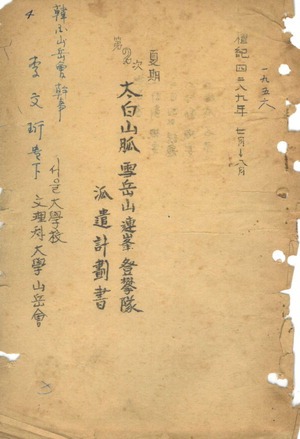 一九五六
檀紀四二八九年 七月~八月
夏期
第 次
太白山脈 雪岳山連峯 登攀隊
派遣計劃書
서울大學校
文理科大學山岳會
韓国山岳會 幹事
李文 貴下